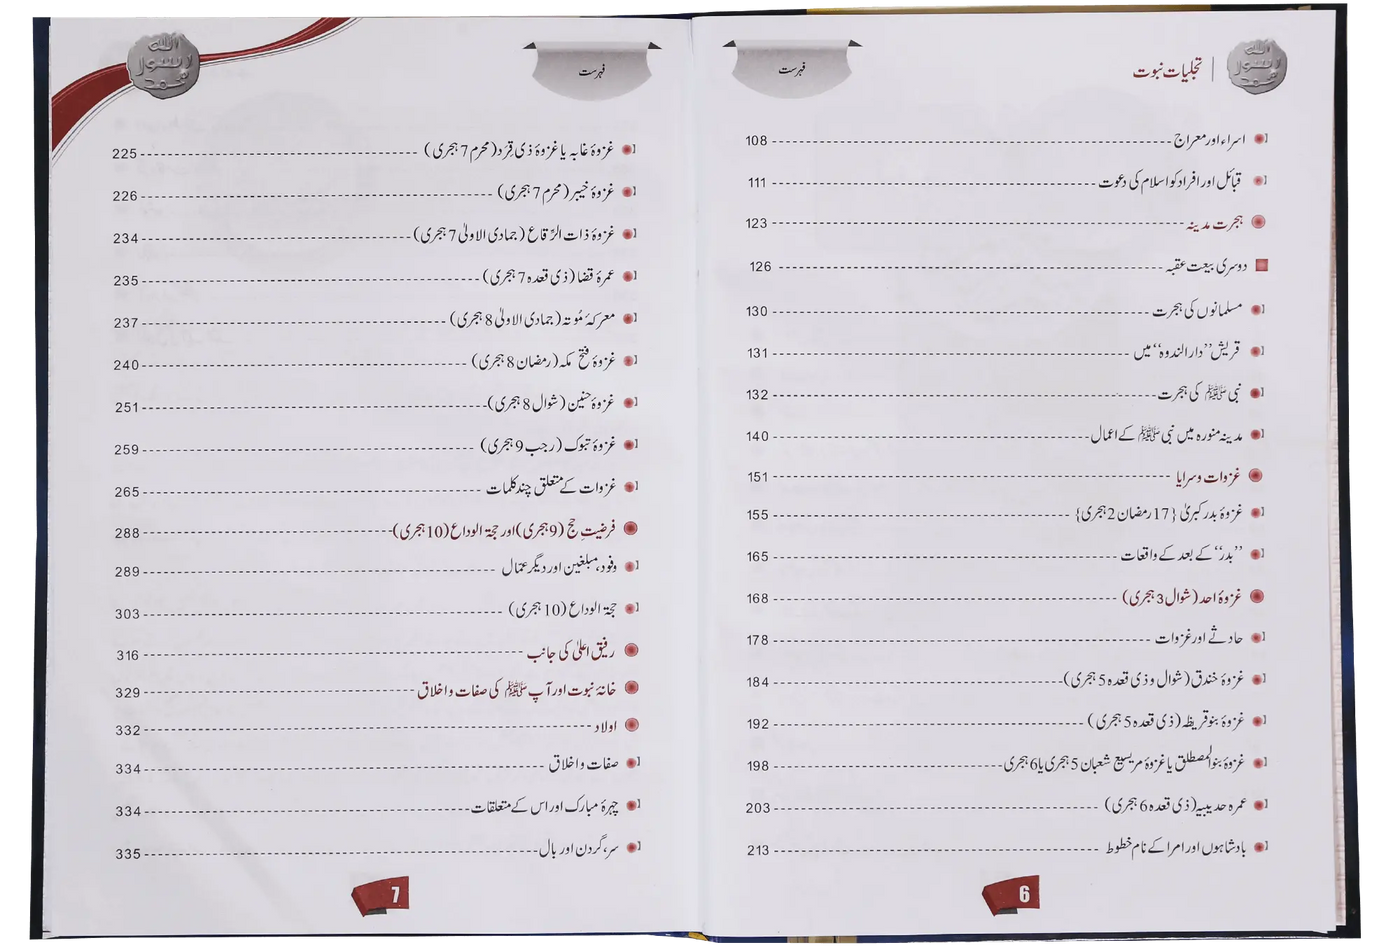 الله
رسول
محمد
تجلیات نبوت
فہرست
اسراء اور معراج 108
قبائل اور افراد کو اسلام کی دعوت 111
ہجرت مدینہ 123
دوسری بیعت عقبہ 126
مسلمانوں کی ہجرت 130
قریش ’’دار الندوہ‘‘ میں 131
نبی ﷺ کی ہجرت 132
مدینہ منورہ میں نبی ﷺ کے اعمال 140
غزوات و سرایا 151
غزوۂ بدر کبریٰ {17 رمضان 2 ہجری} 155
’’بدر‘‘ کے بعد کے واقعات 165
غزوۂ احد (شوال 3 ہجری) 168
حادثے اور غزوات 178
غزوۂ خندق (شوال و ذی قعدہ 5 ہجری) 184
غزوۂ بنو قریظہ (ذی قعدہ 5 ہجری) 192
غزوۂ بنو المصطلق یا غزوۂ مریسیع شعبان 5 ہجری یا 6 ہجری 198
عمرہ حدیبیہ (ذی قعدہ 6 ہجری) 203
بادشاہوں اور امرا کے نام خطوط 213
6
الله
رسول
محمد
فہرست
غزوۂ غابہ یا غزوۂ ذی قَرَد (محرم 7 ہجری) 225
غزوۂ خیبر (محرم 7 ہجری) 226
غزوۂ ذات الرِّقاع (جمادی الاولیٰ 7 ہجری) 234
عمرۂ قضا (ذی قعدہ 7 ہجری) 235
معرکۂ مُوتہ (جمادی الاولیٰ 8 ہجری) 237
غزوۂ فتح مکہ (رمضان 8 ہجری) 240
غزوۂ حنین (شوال 8 ہجری) 251
غزوۂ تبوک (رجب 9 ہجری) 259
غزوات کے متعلق چند کلمات 265
فرضیتِ حج (9 ہجری) اور حجۃ الوداع (10 ہجری) 288
وفود، مبلغین اور دیگر عمّال 289
حجۃ الوداع (10 ہجری) 303
رفیق اعلیٰ کی جانب 316
خانۂ نبوت اور آپ ﷺ کی صفات و اخلاق 329
اولاد 332
صفات و اخلاق 334
چہرۂ مبارک اور اس کے متعلقات 334
سر، گردن اور بال 335
7